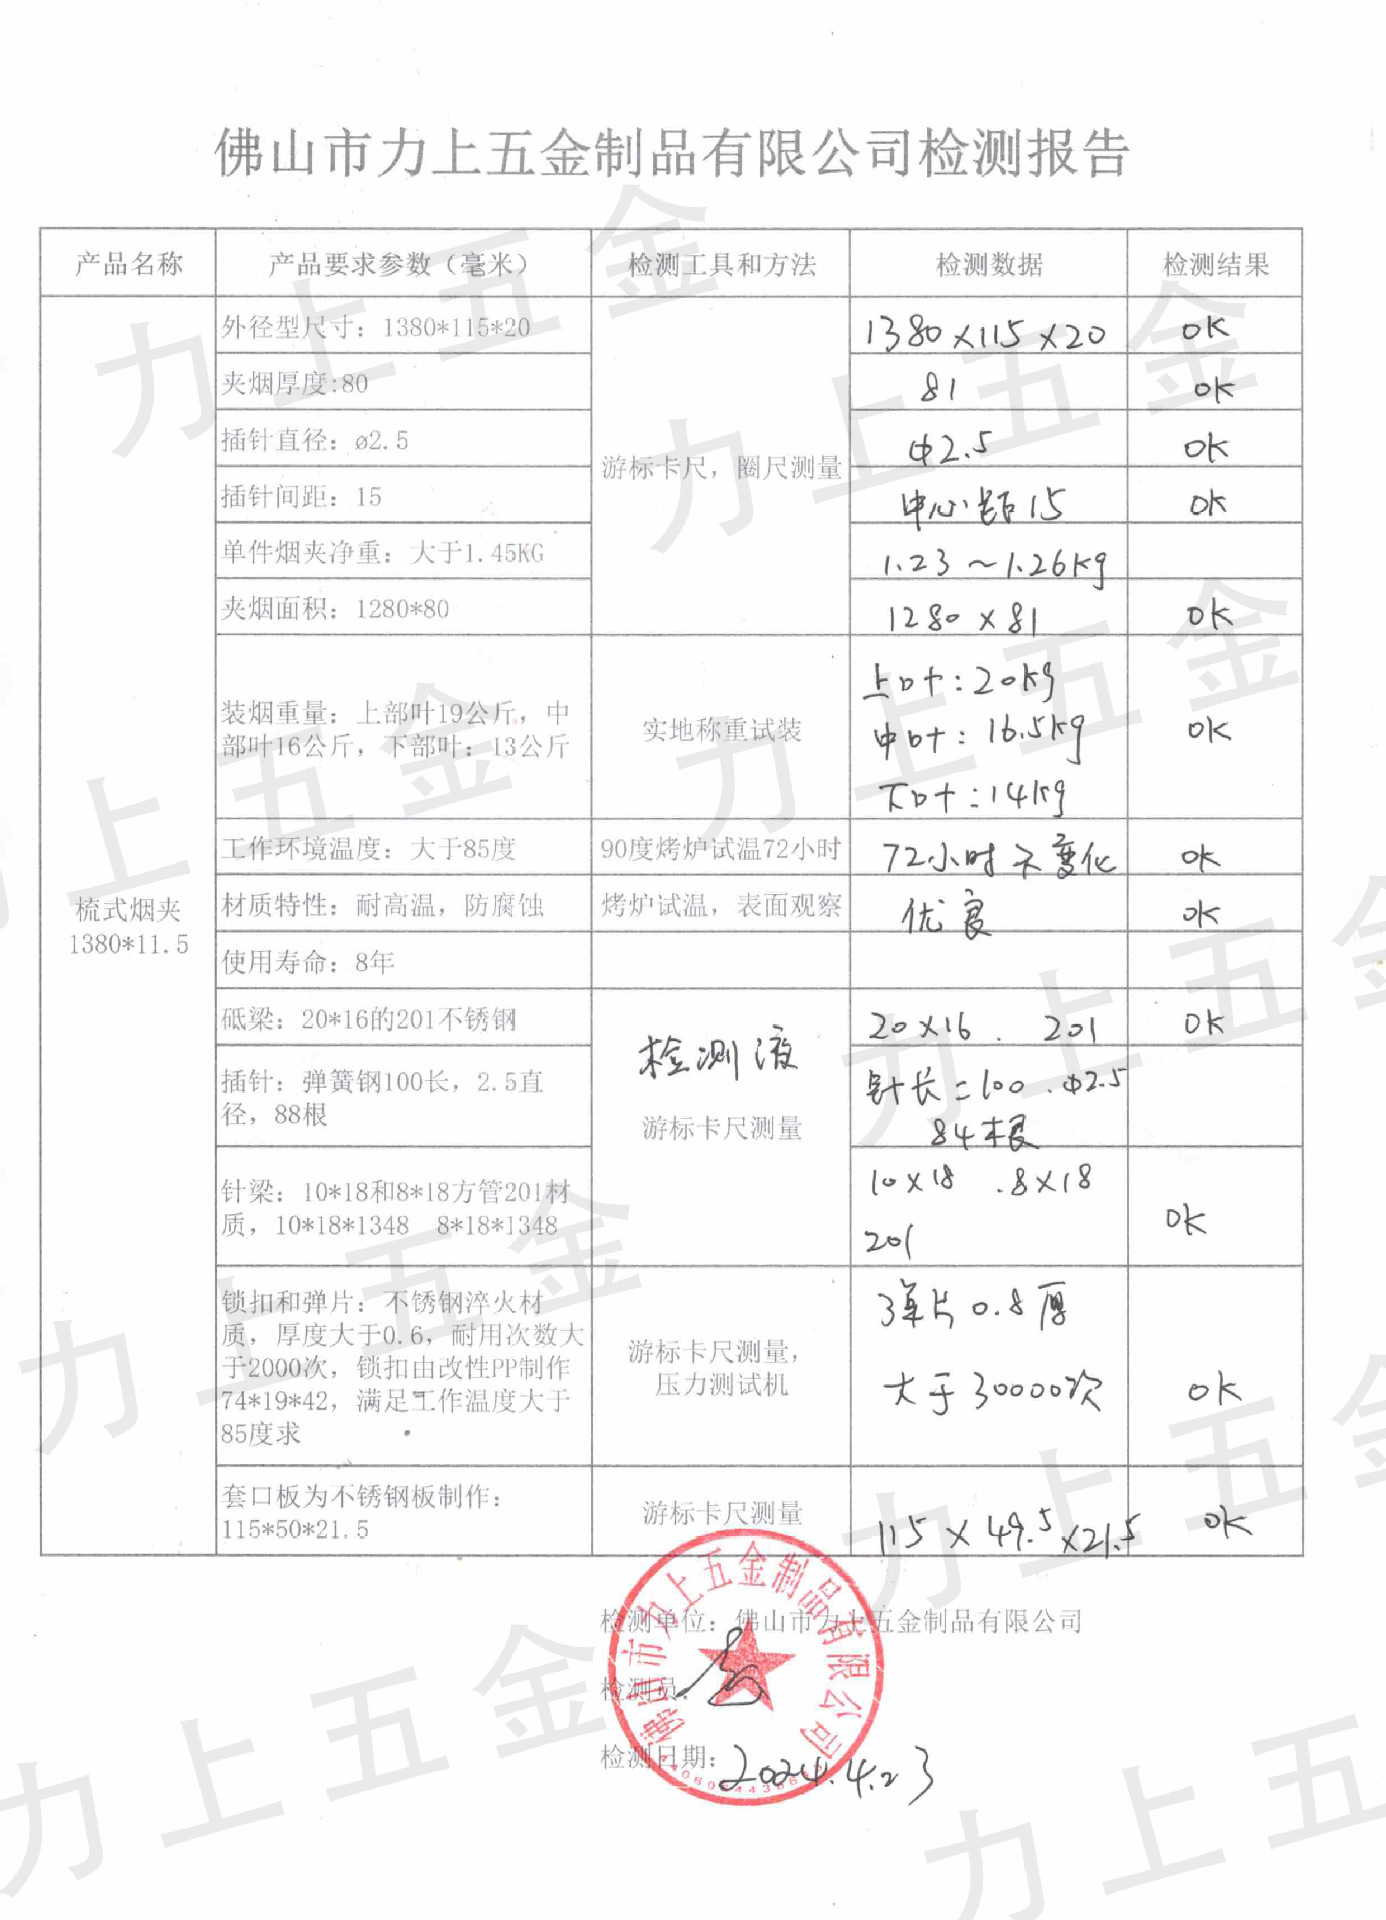 佛山市力上五金制品有限公司检测报告
产品名称
产品要求参数（毫米）
检测工具和方法
检测数据
检测结果
梳式烟夹
1380*11.5
外径型尺寸：1380*115*20
游标卡尺，圈尺测量
1380×115×20
OK
夹烟厚度:80
81
OK
插针直径：ø2.5
Φ2.5
OK
插针间距：15
中心距15
OK
单件烟夹净重：大于1.45KG
1.23～1.26kg
夹烟面积：1280*80
1280×81
OK
装烟重量：上部叶19公斤，中
部叶16公斤，下部叶：13公斤
实地称重试装
上叶：20kg
中叶：16.5kg
下叶：14kg
OK
工作环境温度：大于85度
90度烤炉试温72小时
72小时不变化
OK
材质特性：耐高温，防腐蚀
烤炉试温，表面观察
优良
OK
使用寿命：8年
砥梁：20*16的201不锈钢
检测液
游标卡尺测量
20×16. 201
OK
插针：弹簧钢100长，2.5直
径，88根
针长=100.Φ2.5
84根
针梁：10*18和8*18方管201材
质，10*18*1348 8*18*1348
10×18 .8×18
201
OK
锁扣和弹片：不锈钢淬火材
质，厚度大于0.6，耐用次数大
于2000次，锁扣由改性PP制作
74*19*42，满足工作温度大于
85度求
游标卡尺测量，
压力测试机
弹片0.8厚
大于30000次
OK
套口板为不锈钢板制作：
115*50*21.5
游标卡尺测量
115×49.5×21.5
OK
检测单位：佛山市力上五金制品有限公司
检测员：
检测日期：2024.4.23
佛山市力上五金制品有限公司
力上五金
力上五金
力上五金
力上五金
力上五金
力上五金
力上五金
力上五金
力上五